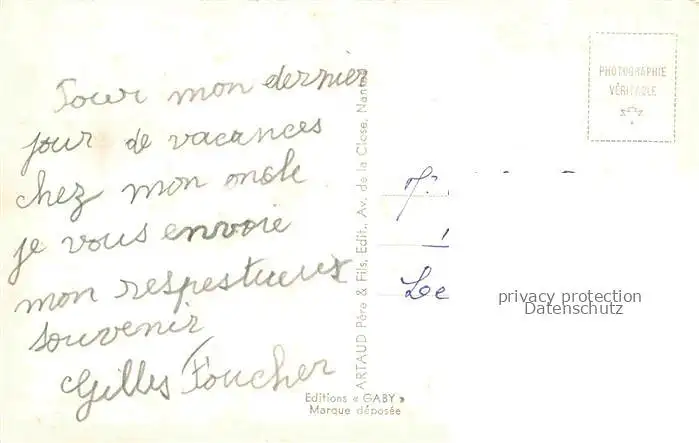 Pour mon dernier
jour de vacances
chez mon oncle
je vous envoie
mon respestueux
souvenir
Gilles Foucher
ARTAUD Père & Fils, Edit., Av. de la Close, Nantes
Editions « GABY »
Marque déposée
PHOTOGRAPHIE
VÉRITABLE
M.
Le
privacy protection
Datenschutz